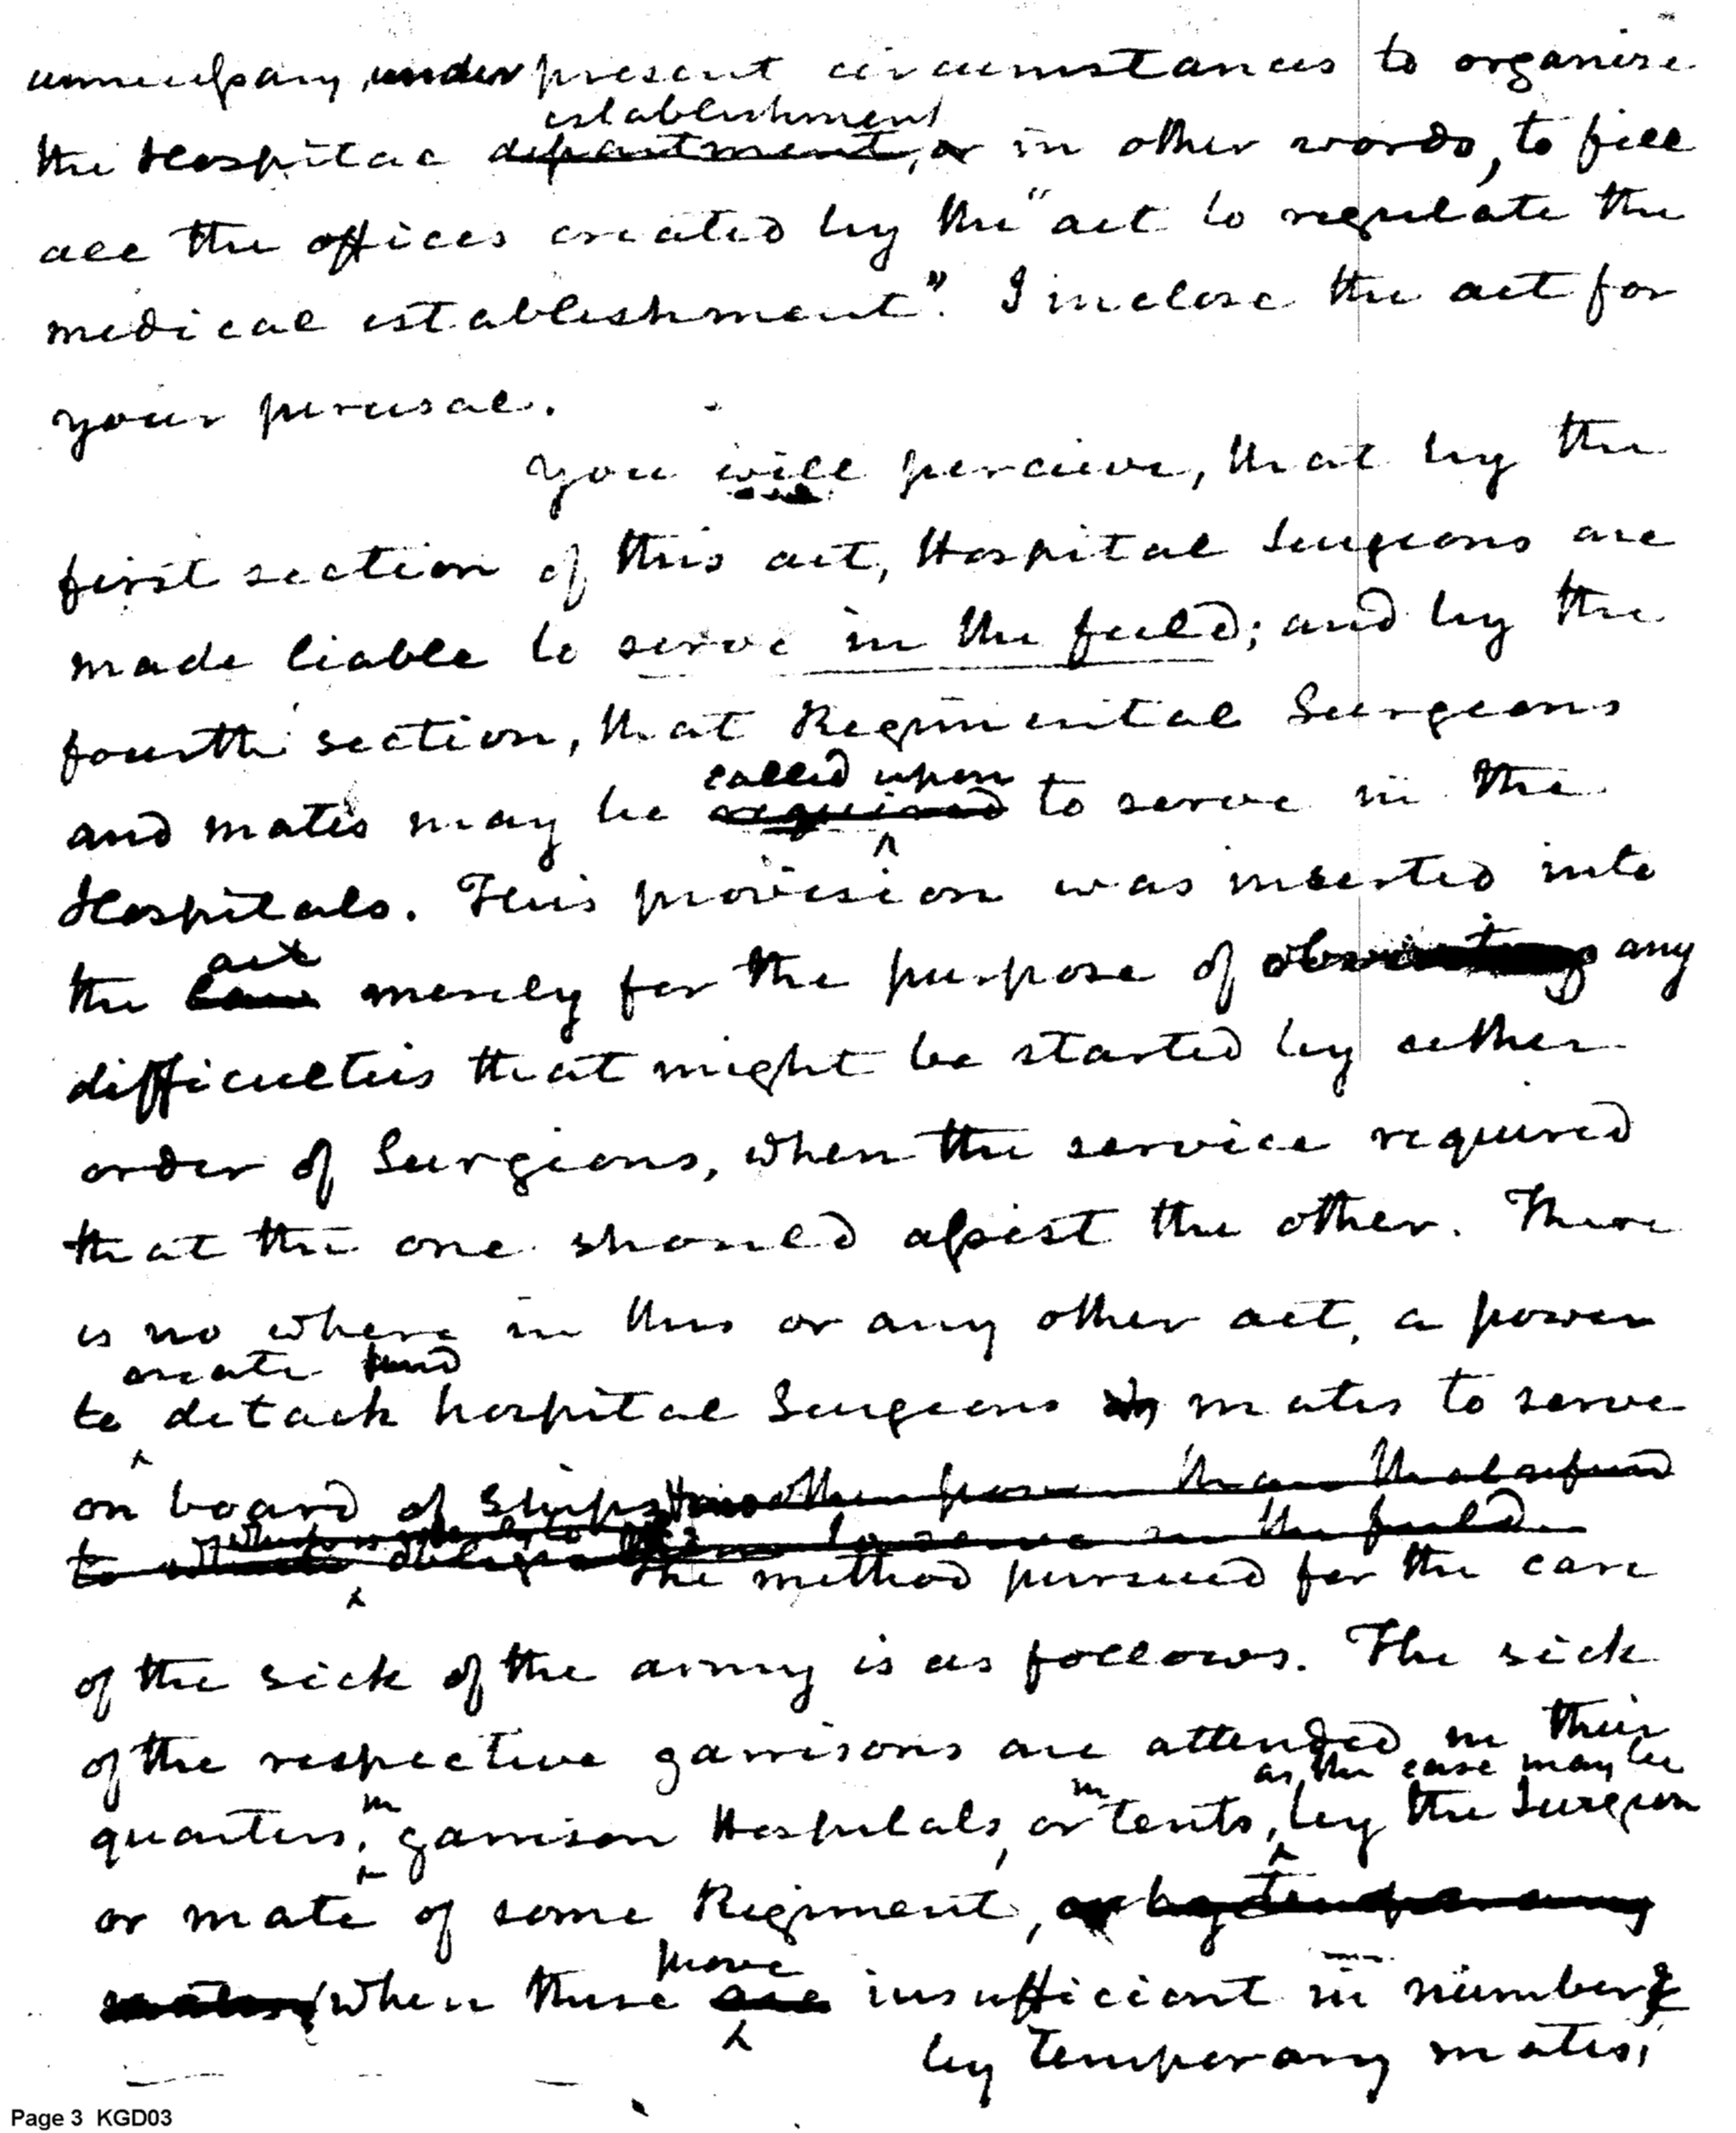 unnecessary, under present circumstances to organise
establishment
the Hospital department, or in other words, to fill
all the offices created by the "act to regulate the
medical establishment". I inclose the act for
your perusal.
You will percieve, that by the
first section of this act, Hospital Surgeons are
made liable to serve in the field; and by the
fourth section, that Regimental Surgeons
called upon
and mates may be required to serve in the
Hospitals. This provision was inserted into
act
the law merely for the purpose of obviating any
difficulties that might be started by either
order of Surgeons, when the service required
that the one should assist the other. There
is no where in this or any other act, a power
create and
to detach hospital Surgeons or mates to serve
on board of Ships other power than that
to oblige to serve in the field
The method pursued for the care
of the sick of the army is as follows. The sick
of the respective garrisons are attended in their
as the case may be
in in
quarters, garrison Hospitals, or tents, by the Surgeon
or mate of some Regiment, or by temporary
prove
mates, when these are insufficient in number &
by temporary mates,
Page 3 KGD03